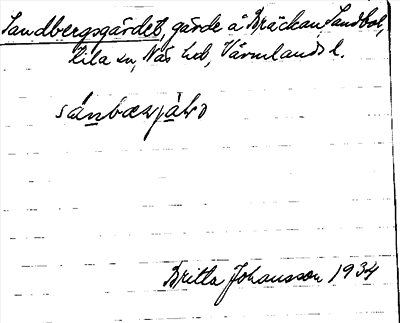 Sandbergsgärdet, gärde å Bräckan, Sandbol,
Lila sn, Näs hd, Värmlands l.
sánbærjáḷɒ
Britta Johansson 1934